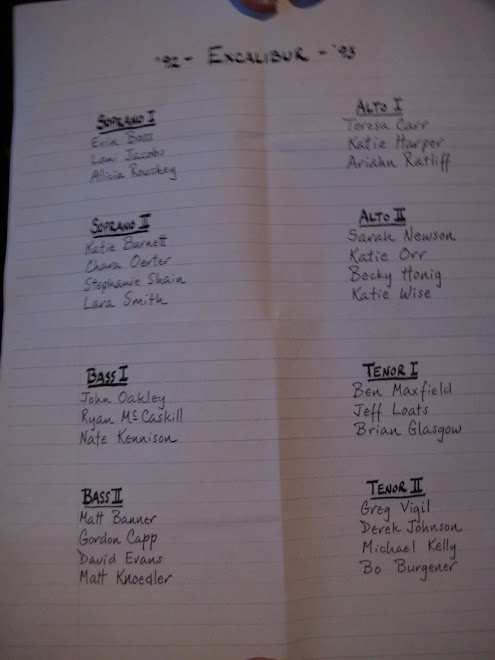 '92 - EXCALIBUR - '93
SOPRANO I
Erin Bass
Lani Jacobs
Allicia Roushey
ALTO I
Teresa Carr
Katie Harper
Ariahn Ratliff
SOPRANO II
Katie Barnett
Chara Oerter
Stephanie Shain
Lara Smith
ALTO II
Sarah Newson
Katie Orr
Becky Honig
Katie Wise
BASS I
John Oakley
Ryan McCaskill
Nate Kennison
TENOR I
Ben Maxfield
Jeff Loats
Brian Glasgow
BASS II
Matt Banner
Gordon Capp
David Evans
Matt Knoedler
TENOR II
Greg Vigil
Derek Johnson
Michael Kelly
Bo Burgener